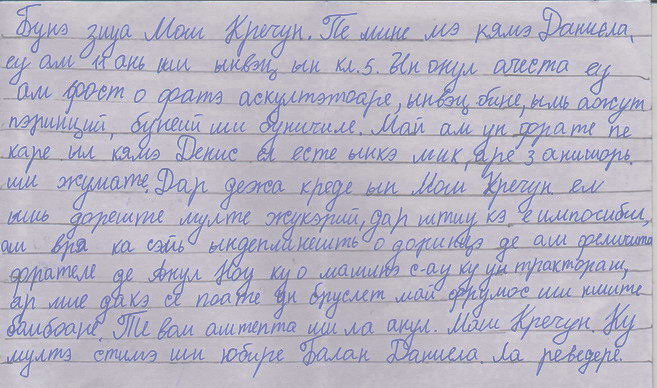 Бунэ зиуа Мош Кречун. Пе мине мэ кямэ Даниела,
еу ам 11 ань ши ынвэц ын кл. 5. Ын онул ачеста еу
ам фост о фатэ аскултэтоаре, ынвэц бине, ымь ажут
пэринций, бунеий ши буничиле. Май ам ун фрате пе
каре ыл кямэ Денис ел есте ынкэ мик, аре 3 анишорь
ши жумате. Дар дежа креде ын Мош Кречун ел
ышь дореште мулте жукэрий, дар штиу кэ е импосибил,
ам вря ка сэйь ындеплинешть о доринцэ де ам феличита
фрателе де Анул Ноу ку о машинэ с-ау ку ун трактораш,
яр мие дакэ се поате ун бруслет май фрумос ши ниште
бамбоане. Те вом аштепта ши ла анул. Мош Кречун. Ку
мултэ стимэ ши юбире Балан Даниела. Ла реведере.